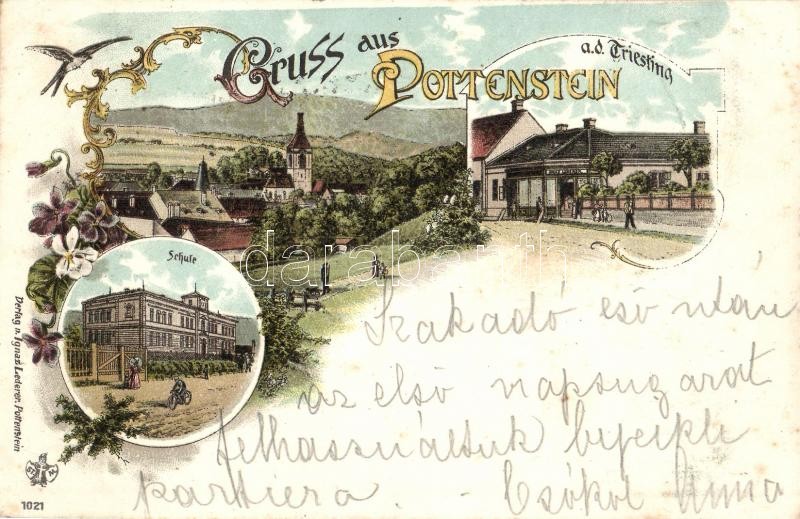 Gruss aus
POTTENSTEIN
a.d. Triesting
Schule
Verlag v. Ignaz Lederer, Pottenstein
1021
darabanth
Szakadó eső után
az első napsugarat
felhasználtuk bycikli
partiera. - Csókol Anna